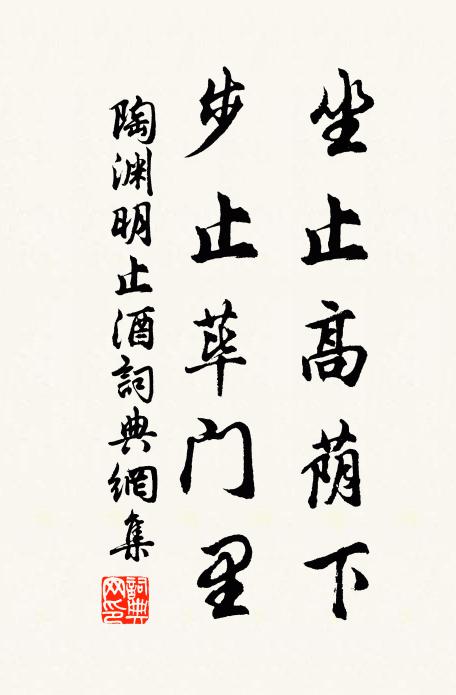 坐止高荫下
步止荜门里
陶渊明止酒詞典網集
詞典网印